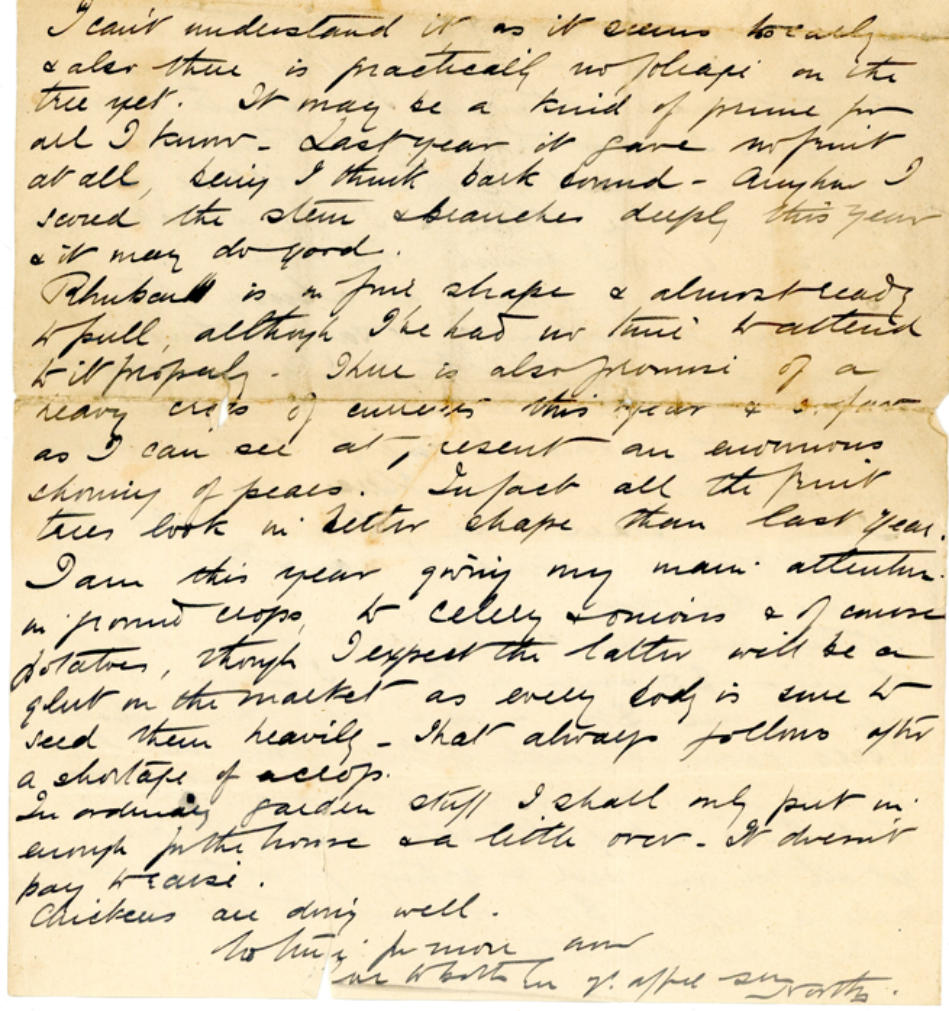 I can't understand it as it seems too early
& also there is practically no foliage on the
tree yet. It may be a kind of prune for
all I know - Last year it gave no fruit
at all, being I think bark bound - Anyhow I
scored the stem & branches deeply this year
& it may do good.
Rhubarb is in fine shape & almost ready
to pull, although I've had no time to attend
to it properly. There is also promise of a
heavy crop of currents this year & so far
as I can see at present an enormous
showing of pears. In fact all the fruit
trees look in better shape than last year.
I am this year giving my main attention
in ground crops, to celery & onions & of course
potatoes, though I expect the latter will be a
glut on the market as every body is sure to
seed them heavily - That always follows after
a shortage of a crop.
In ordinary garden stuff I shall only put in
enough for the house & a little over - It doesn't
pay to raise.
Chickens are doing well.
No time for more now
love to both yr. affec son